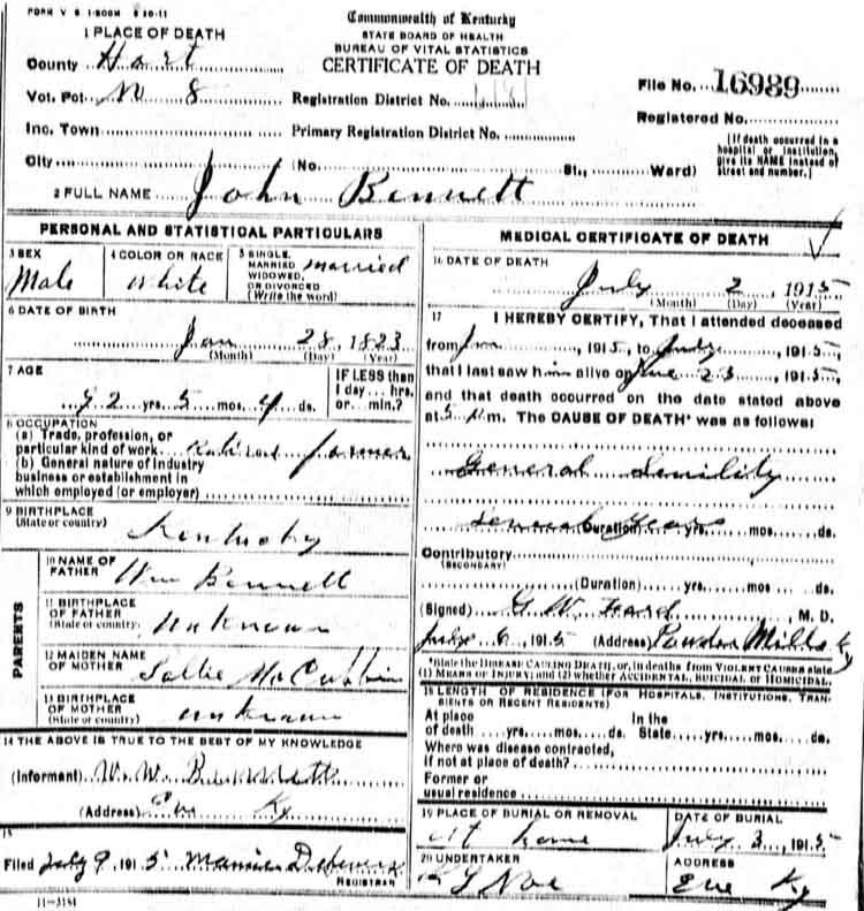 FORM V S 1-500M 8 30-11
Commonwealth of Kentucky
STATE BOARD OF HEALTH
BUREAU OF VITAL STATISTICS
CERTIFICATE OF DEATH
1 PLACE OF DEATH
County Hart
Vot. Pct. N 8
Inc. Town
City
Registration District No.
Primary Registration District No.
(No. St., Ward)
File No. 16989
Registered No.
[If death occurred in a
hospital or institution,
give its NAME instead of
street and number.]
2 FULL NAME John Bennett
PERSONAL AND STATISTICAL PARTICULARS
3 SEX
Male
4 COLOR OR RACE
White
5 SINGLE,
MARRIED
WIDOWED,
OR DIVORCED
(Write the word)
married
6 DATE OF BIRTH
Jan 28, 1823
(Month) (Day) (Year)
7 AGE
92 yrs. 5 mos. 4 ds.
IF LESS than
1 day ... hrs.
or ... min.?
8 OCCUPATION
(a) Trade, profession, or
particular kind of work Retired farmer
(b) General nature of industry
business or establishment in
which employed (or employer)
9 BIRTHPLACE
(State or country)
Kentucky
PARENTS
10 NAME OF
FATHER
Wm Bennett
11 BIRTHPLACE
OF FATHER
(State or country)
unknown
12 MAIDEN NAME
OF MOTHER
Sallie McCubbin
13 BIRTHPLACE
OF MOTHER
(State or country)
unknown
14 THE ABOVE IS TRUE TO THE BEST OF MY KNOWLEDGE
(Informant) W. W. Bennett
(Address) Ky
15
Filed July 9, 1915 Mamie
REGISTRAR
11-3184
MEDICAL CERTIFICATE OF DEATH
16 DATE OF DEATH
July 2, 1915
(Month) (Day) (Year)
17 I HEREBY CERTIFY, That I attended deceased
from , 1915, to , 1915,
that I last saw him alive on June 23, 1915,
and that death occurred on the date stated above
at 5 m. The CAUSE OF DEATH* was as follows:
General Senility
Several Years (Duration) yrs. mos. ds.
Contributory
(SECONDARY)
(Duration) yrs. mos. ds.
(Signed) G. W. , M. D.
July 6, 1915 (Address) Powder Mills Ky
*State the DISEASE CAUSING DEATH, or, in deaths from VIOLENT CAUSES state
(1) MEANS OF INJURY; and (2) whether ACCIDENTAL, SUICIDAL or HOMICIDAL.
18 LENGTH OF RESIDENCE (FOR HOSPITALS, INSTITUTIONS, TRAN-
SIENTS OR RECENT RESIDENTS)
At place In the
of death yrs. mos. ds. State yrs. mos. ds.
Where was disease contracted,
if not at place of death?
Former or
usual residence
19 PLACE OF BURIAL OR REMOVAL
At home
DATE OF BURIAL
July 3, 1915
20 UNDERTAKER
Noe
ADDRESS
Eve Ky